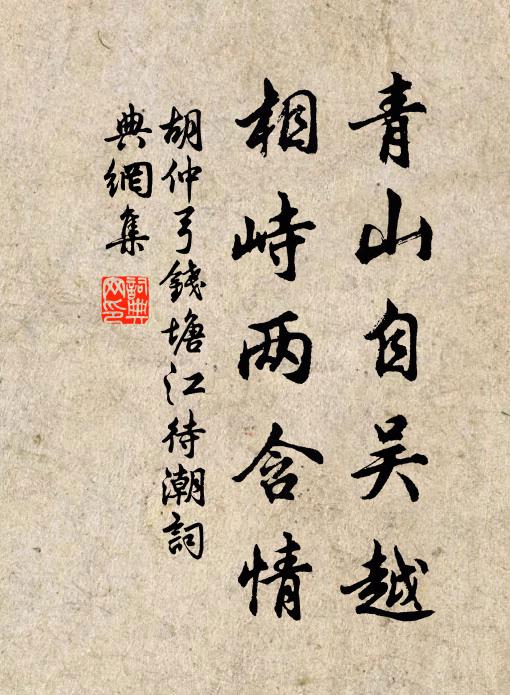 青山自吴越
相峙两含情
胡仲弓錢塘江待潮詞
典網集
詞典
网印